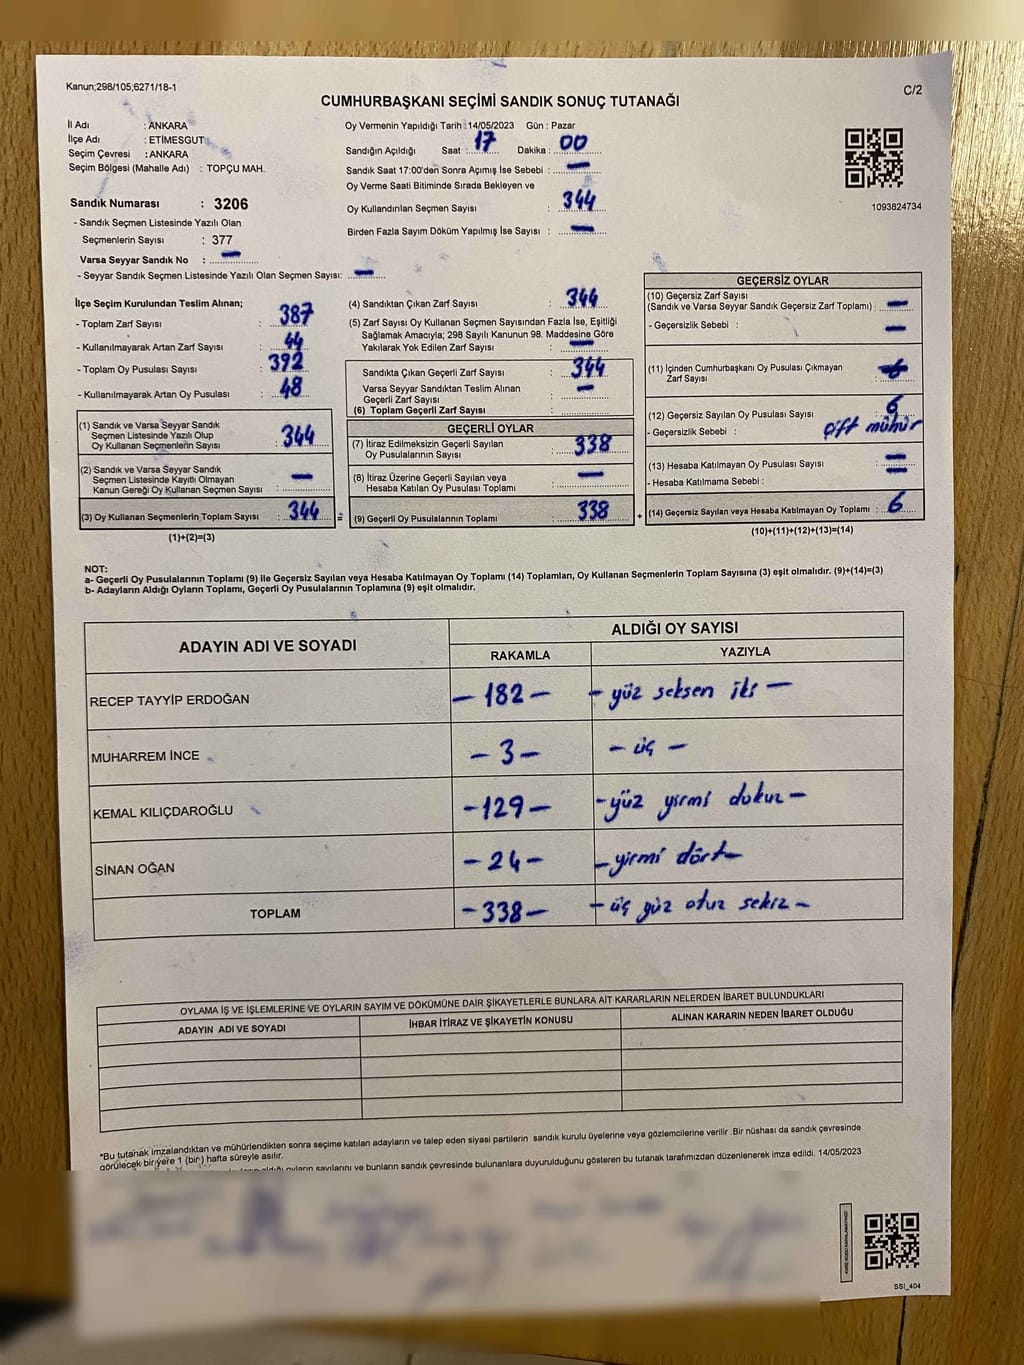 Kanun;298/105;6271/18-1
C/2
CUMHURBAŞKANI SEÇİMİ SANDIK SONUÇ TUTANAĞI
İl Adı : ANKARA
İlçe Adı : ETİMESGUT
Seçim Çevresi : ANKARA
Seçim Bölgesi (Mahalle Adı) : TOPÇU MAH.
Sandık Numarası : 3206
- Sandık Seçmen Listesinde Yazılı Olan
Seçmenlerin Sayısı : 377
Varsa Seyyar Sandık No : —
- Seyyar Sandık Seçmen Listesinde Yazılı Olan Seçmen Sayısı: —
Oy Vermenin Yapıldığı Tarih :14/05/2023 Gün : Pazar
Sandığın Açıldığı Saat : 17 Dakika : 00
Sandık Saat 17:00'den Sonra Açımış İse Sebebi : —
Oy Verme Saati Bitiminde Sırada Bekleyen ve
Oy Kullandırılan Seçmen Sayısı : 344
Birden Fazla Sayım Döküm Yapılmış İse Sayısı : —
1093824734
İlçe Seçim Kurulundan Teslim Alınan;
- Toplam Zarf Sayısı : 387
- Kullanılmayarak Artan Zarf Sayısı : 44
- Toplam Oy Pusulası Sayısı : 392
- Kullanılmayarak Artan Oy Pusulası : 48
(1) Sandık ve Varsa Seyyar Sandık
Seçmen Listesinde Yazılı Olup
Oy Kullanan Seçmenlerin Sayısı : 344
(2) Sandık ve Varsa Seyyar Sandık
Seçmen Listesinde Kayıtlı Olmayan
Kanun Gereği Oy Kullanan Seçmen Sayısı : —
(3) Oy Kullanan Seçmenlerin Toplam Sayısı : 344 =
(1)+(2)=(3)
(4) Sandıktan Çıkan Zarf Sayısı : 344
(5) Zarf Sayısı Oy Kullanan Seçmen Sayısından Fazla İse, Eşitliği
Sağlamak Amacıyla; 298 Sayılı Kanunun 98. Maddesine Göre
Yakılarak Yok Edilen Zarf Sayısı : —
Sandıkta Çıkan Geçerli Zarf Sayısı : 344
Varsa Seyyar Sandıktan Teslim Alınan
Geçerli Zarf Sayısı : —
(6) Toplam Geçerli Zarf Sayısı :
GEÇERLİ OYLAR
(7) İtiraz Edilmeksizin Geçerli Sayılan
Oy Pusulalarının Sayısı : 338
(8) İtiraz Üzerine Geçerli Sayılan veya
Hesaba Katılan Oy Pusulası Toplamı : —
(9) Geçerli Oy Pusulalarının Toplamı : 338 +
GEÇERSİZ OYLAR
(10) Geçersiz Zarf Sayısı
(Sandık ve Varsa Seyyar Sandık Geçersiz Zarf Toplamı) : —
- Geçersizlik Sebebi : —
(11) İçinden Cumhurbaşkanı Oy Pusulası Çıkmayan
Zarf Sayısı :
(12) Geçersiz Sayılan Oy Pusulası Sayısı : 6
- Geçersizlik Sebebi : Çift mühür
(13) Hesaba Katılmayan Oy Pusulası Sayısı : —
- Hesaba Katılmama Sebebi : —
(14) Geçersiz Sayılan veya Hesaba Katılmayan Oy Toplamı : 6
(10)+(11)+(12)+(13)=(14)
NOT:
a- Geçerli Oy Pusulalarının Toplamı (9) ile Geçersiz Sayılan veya Hesaba Katılmayan Oy Toplamı (14) Toplamları, Oy Kullanan Seçmenlerin Toplam Sayısına (3) eşit olmalıdır. (9)+(14)=(3)
b- Adayların Aldığı Oyların Toplamı, Geçerli Oy Pusulalarının Toplamına (9) eşit olmalıdır.
ADAYIN ADI VE SOYADI
ALDIĞI OY SAYISI
RAKAMLA YAZIYLA
RECEP TAYYİP ERDOĞAN – 182 – – yüz seksen iki –
MUHARREM İNCE – 3 – – üç –
KEMAL KILIÇDAROĞLU – 129 – – yüz yirmi dokuz –
SİNAN OĞAN – 24 – – yirmi dört –
TOPLAM – 338 – – üç yüz otuz sekiz –
OYLAMA İŞ VE İŞLEMLERİNE VE OYLARIN SAYIM VE DÖKÜMÜNE DAİR ŞİKAYETLERLE BUNLARA AİT KARARLARIN NELERDEN İBARET BULUNDUKLARI
ADAYIN ADI VE SOYADI İHBAR İTİRAZ VE ŞİKAYETİN KONUSU ALINAN KARARIN NEDEN İBARET OLDUĞU
*Bu tutanak imzalandıktan ve mühürlendikten sonra seçime katılan adayların ve talep eden siyasi partilerin sandık kurulu üyelerine veya gözlemcilerine verilir .Bir nüshası da sandık çevresinde
görülecek bir yere 1 (bir) hafta süreyle asılır.
aldığı oyların sayılarını ve bunların sandık çevresinde bulunanlara duyurulduğunu gösteren bu tutanak tarafımızdan düzenlenerek imza edildi. 14/05/2023
SSI_404